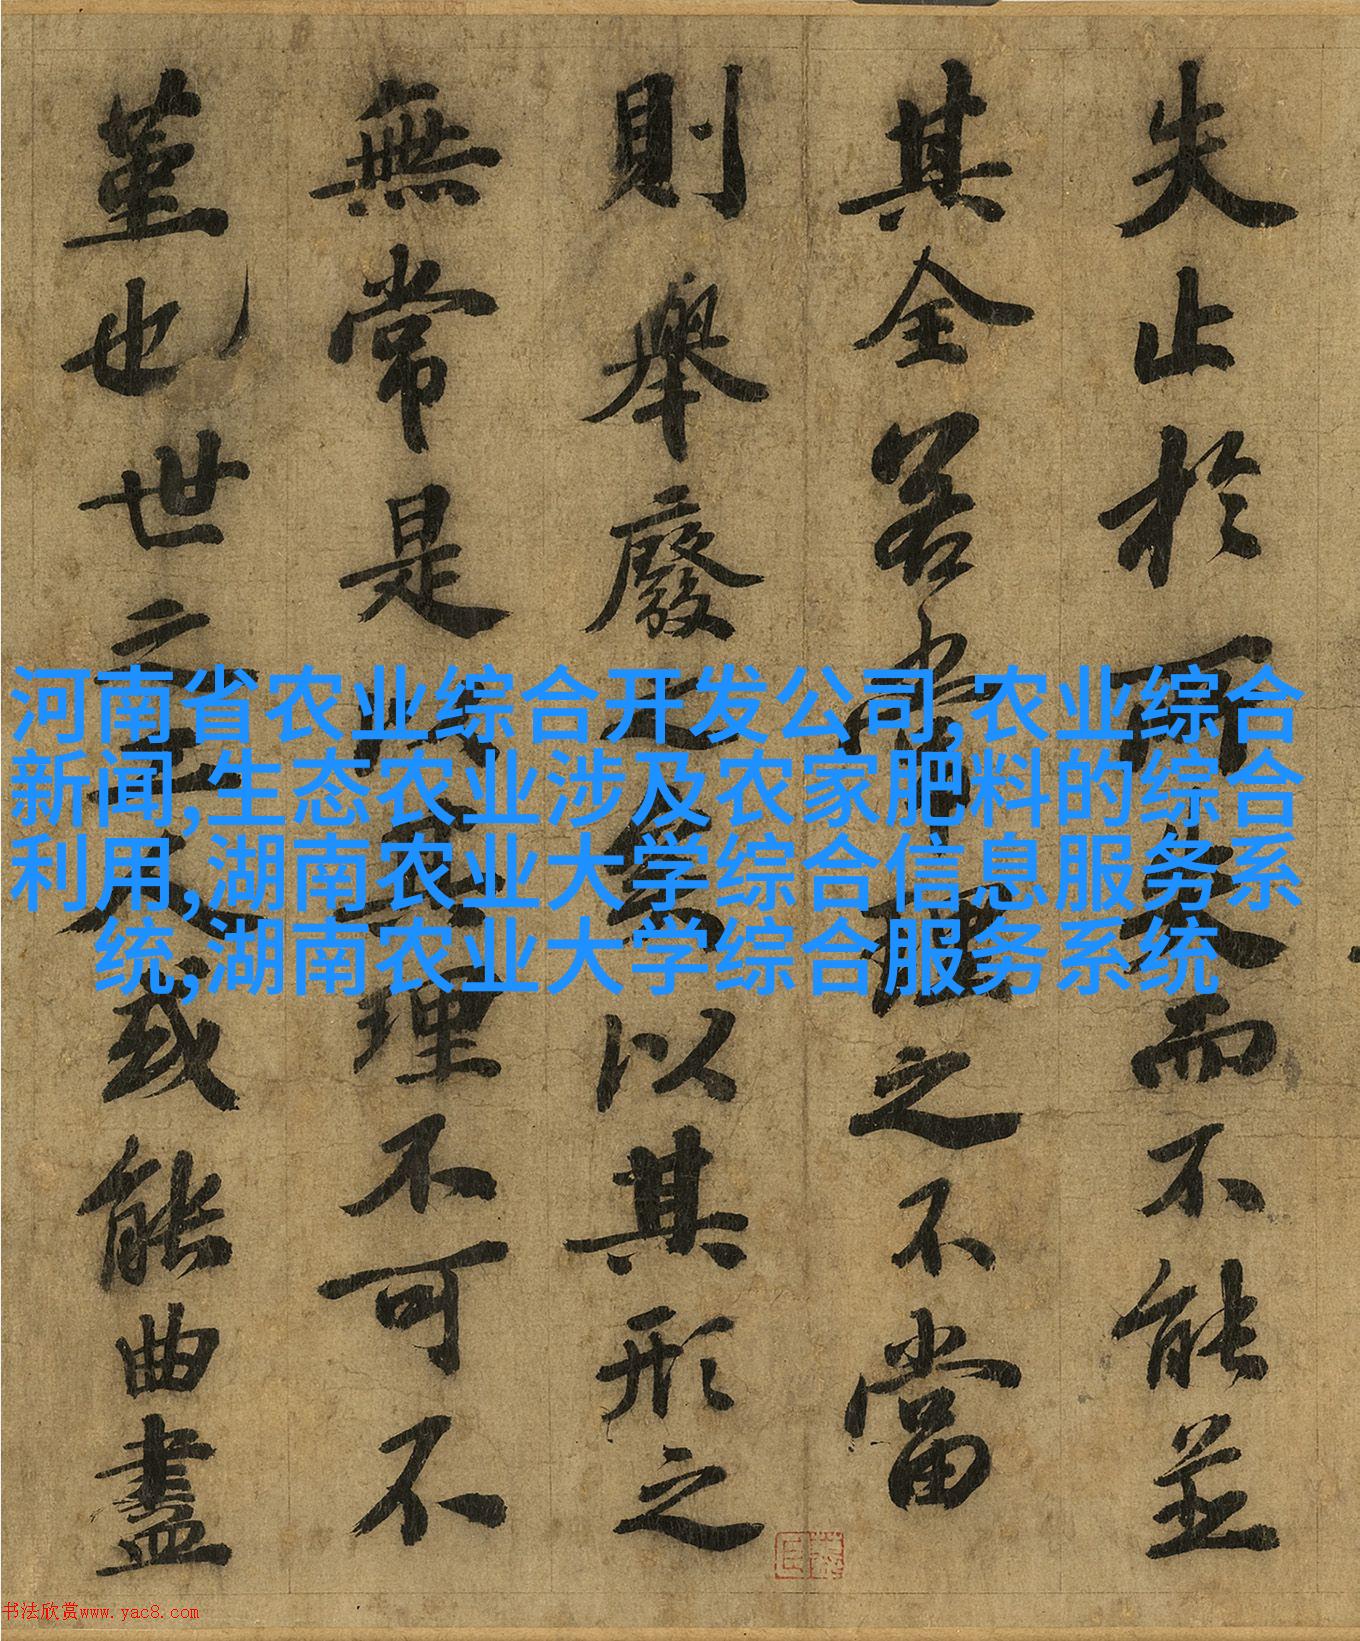 失止於所失而不能並
其全若常理之不當
則舉廢之矣以其形之
無常是以其理不可不
堇也世之工人或能曲盡
河南省农业综合开发公司,农业综合
新闻,生态农业涉及农家肥料的综合
利用,湖南农业大学综合信息服务系
统,湖南农业大学综合服务系统
书法欣赏www.yac8.com